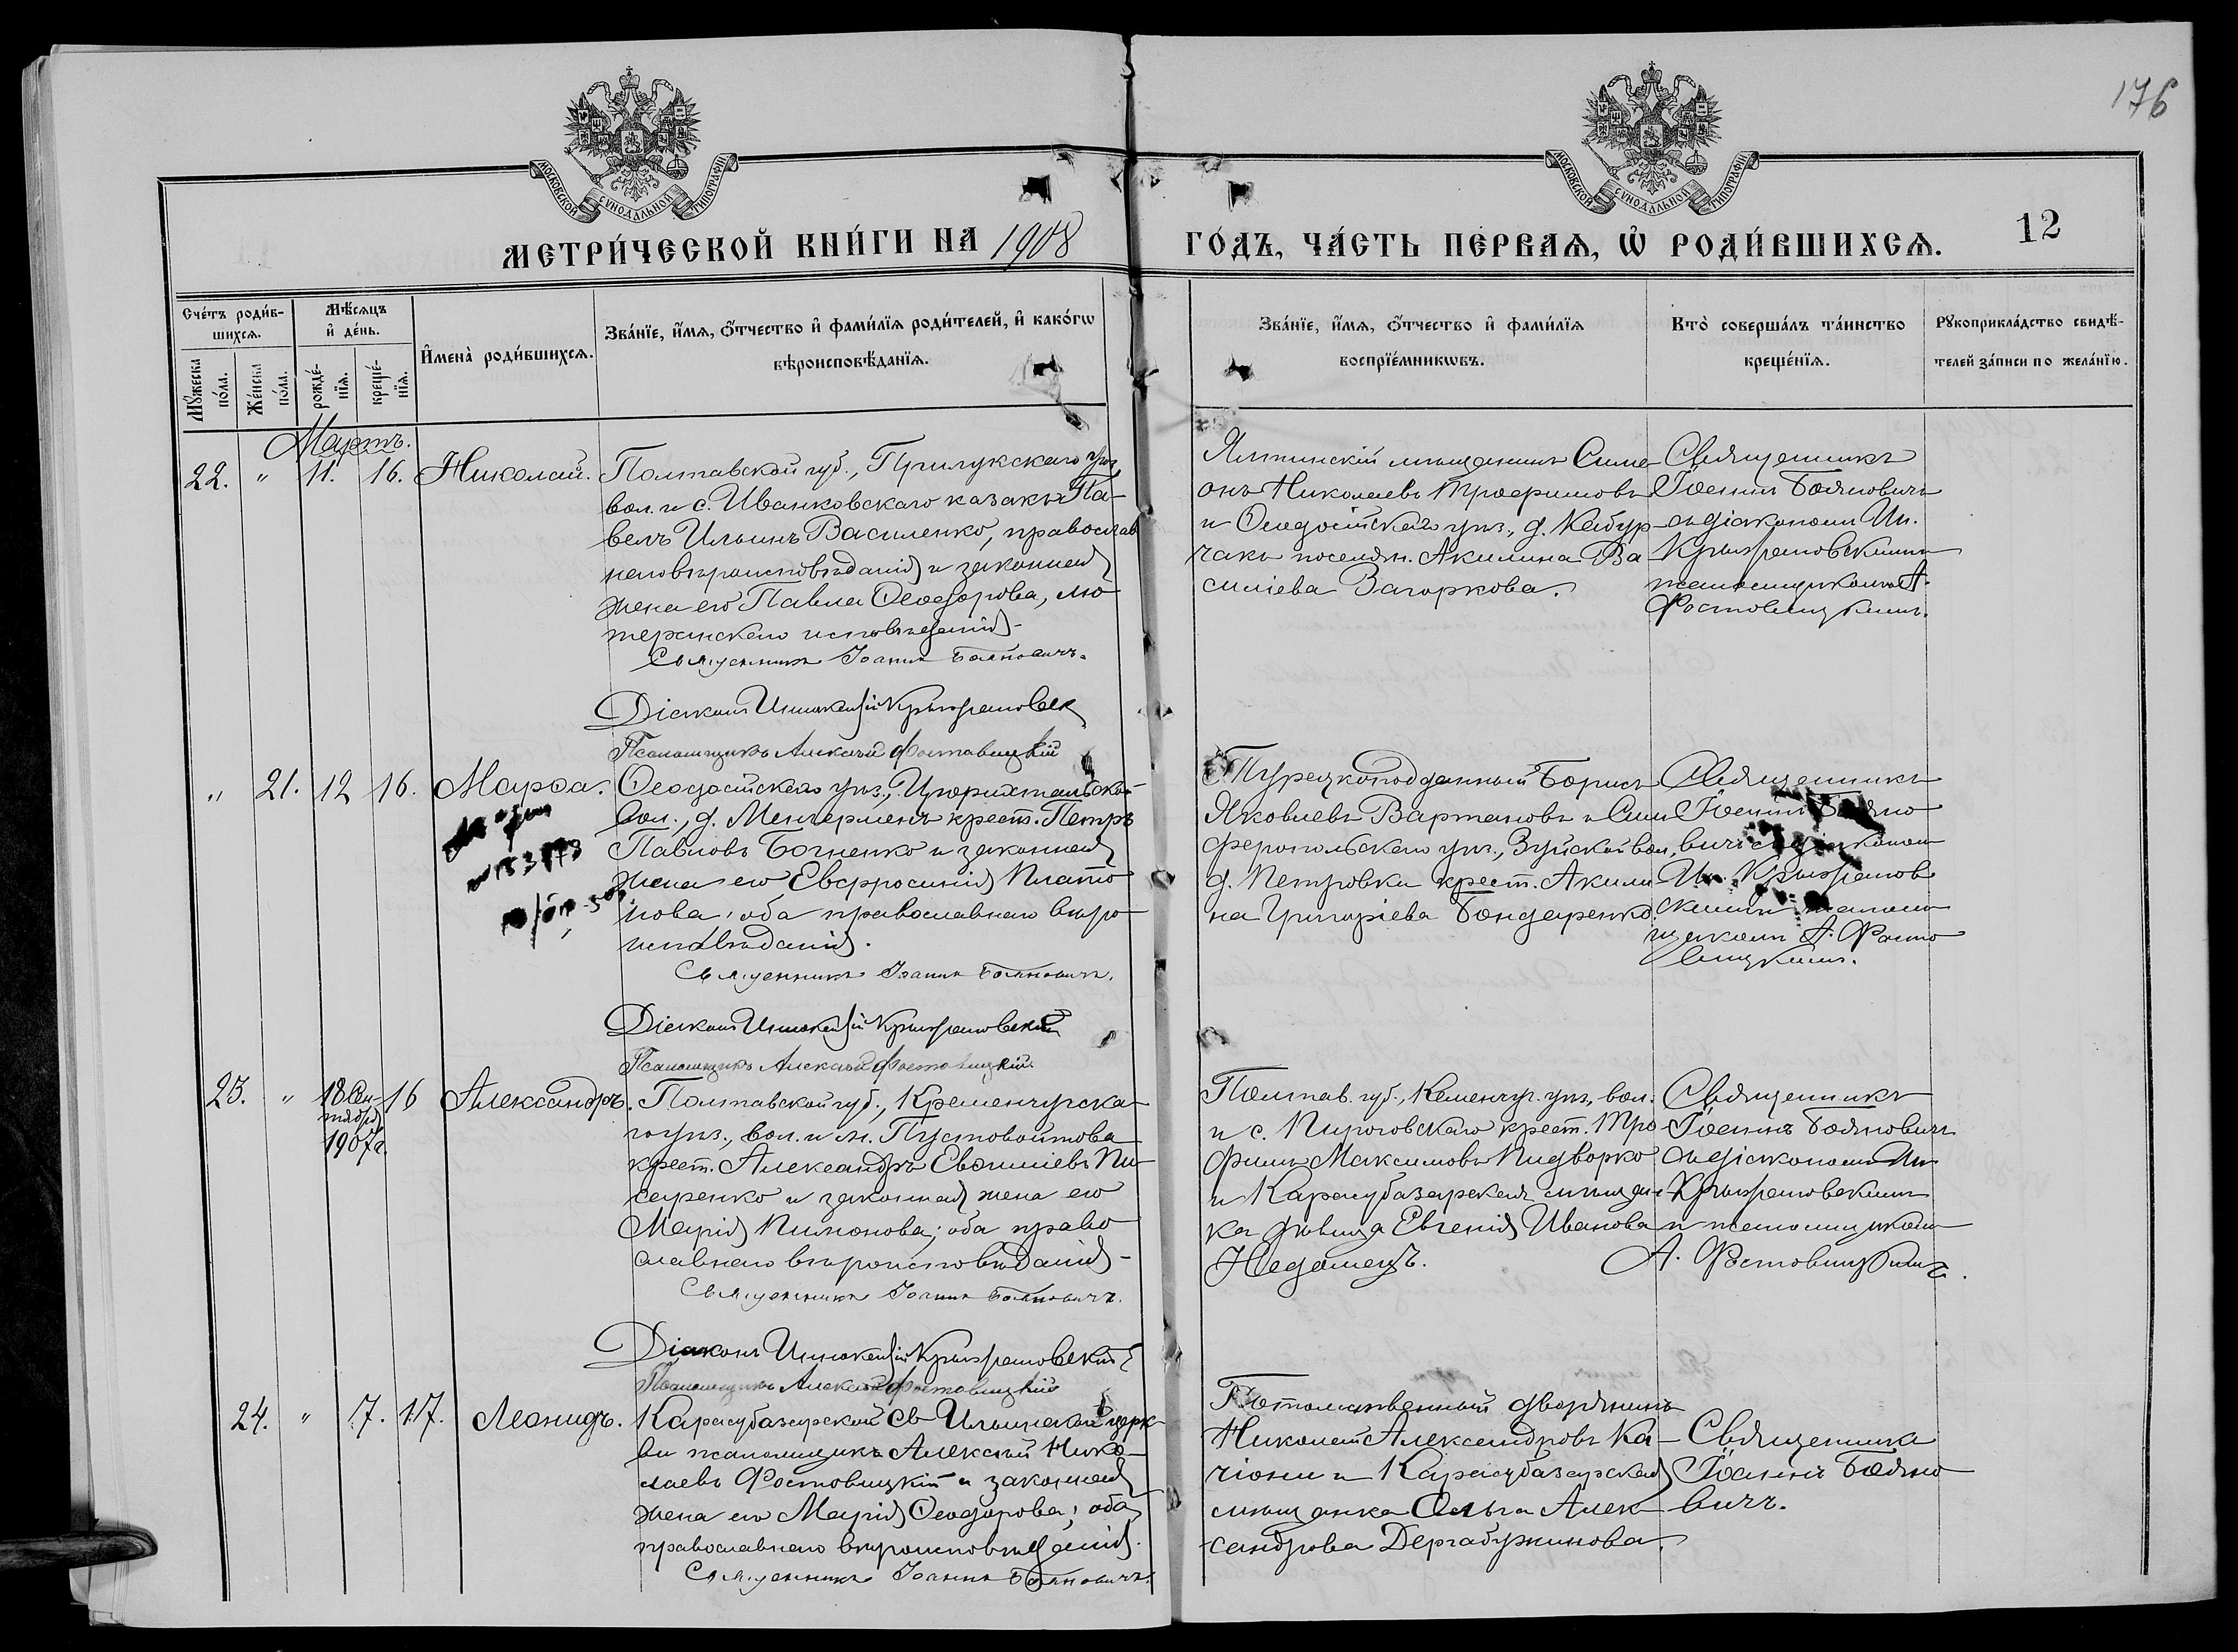 176
МОСКОВСКОЙ СѴНОДАЛЬНОЙ ТИПОГРАФІИ
МОСКОВСКОЙ СѴНОДАЛЬНОЙ ТИПОГРАФІИ
МЕТРИ́ЧЕСКОЙ КНИ́ГИ НА 1908
ГО́ДЪ, ЧА́СТЬ ПЕ́РВАѦ, Ѡ҆ РОДИ́ВШИХСѦ.
12
Сче́тъ роди́в-
шихсѧ.
Мѣ́сѧцъ
и҆ де́нь.
И҆мена̀ роди́вшихсѧ.
Зва́нїе, и҆́мѧ, ѻ҆́тчество и҆ фами́лїѧ роди́телей, и҆ како́гѡ
вѣроисповѣ́данїѧ.
Мꙋ́жеска
по́ла.
Же́нска
по́ла.
рожде́-
нїѧ.
креще́-
нїѧ.
Зва́нїе, и҆́мѧ, ѻ҆́тчество и҆ фами́лїѧ
воспрїе́мникѡвъ.
Кто̀ соверша́лъ та́инство
креще́нїѧ.
Рꙋкоприкла́дство свидѣ́-
телей за́писи по жела́нїю.
Мартъ.
22. " 11. 16. Николай.
Полтавской губ., Прилукскаго уѣз.
вол. и с. Иванковскаго казакъ Па-
велъ Ильинъ Василенко, православ
наго вѣроисповѣданія и законная
жена его Павла Ѳеодорова, лю-
теранскаго исповѣданія.
Священникъ Іоаннъ Баяновичъ.
Діаконъ Иннокентій Крыжановск
Псаломщикъ Алексѣй Фостовицкій
Ялтинскій мѣщанинъ Симе-
онъ Николаевъ Трофимовъ
и Ѳеодосійскаго уѣз., д. Кабур-
чакъ поселян. Акилина Ва-
силіева Вагоркова.
Священникъ
Іоаннъ Баяновичъ
съ діакономъ Ин.
Крыжановскимъ
псаломщикомъ А.
Фостовицкимъ.
" 21. 12 16. Марѳа.
Ѳеодосійскаго уѣз., Цюрихтальской
вол., д. Менгерменъ крест. Петръ
Павловъ Богненко и законная
жена его Евфросинія Плато-
нова; оба православнаго вѣро-
исповѣданія.
Священникъ Іоаннъ Баяновичъ.
Діаконъ Иннокентій Крыжановскій
Псаломщикъ Алексѣй Фостовицкій.
Турецкоподданный Борисъ
Яковлевъ Вартановъ и Сим
феропольскаго уѣз., Зуйской вол.,
д. Петровки крест. Акили-
на Григоріева Бондаренко.
Священникъ
Іоаннъ Баяно
вичъ съ діакономъ
Ин. Крыжанов
скимъ псалом
щикомъ А. Фосто
вицкимъ.
23. " 18 Сен-
тября
1907 г. 16 Александръ.
Полтавской губ., Кременчугска-
го уѣз., вол. и м. Пустовойтова
крест. Александръ Евѳиміевъ Пи-
саренко и законная жена его
Марія Пимонова; оба право-
славнаго вѣроисповѣданія.
Священникъ Іоаннъ Баяновичъ.
Діаконъ Иннокентій Крыжановскій
Псаломщикъ Алексѣй Фостовицкій
Полтав. губ., Кеменчуг. уѣз., вол.
и с. Пироговскаго крест. Тро-
фимъ Максимовъ Пидворко
и Карасубазарская мѣщан-
ка дѣвица Евгенія Иванова
Недомецъ.
Священникъ
Іоаннъ Баяновичъ
съ діакономъ Ин
Крыжановскимъ
и псаломщикомъ
А. Фостовицкимъ.
24. " 7. 17. Леонидъ.
Карасубазарской Св-Ильинской церк-
ви псаломщикъ Алексѣй Нико-
лаевъ Фостовицкій и законная
жена его Марія Ѳеодорова; оба
православнаго вѣроисповѣданія.
Священникъ Іоаннъ Баяновичъ.
Потомственный дворянинъ
Николай Александровъ Ка-
чіони и Карасубазарская
мѣщанка Ольга Алек-
сандрова Дергабужинова.
Священникъ
Іоаннъ Баяно
вичъ.